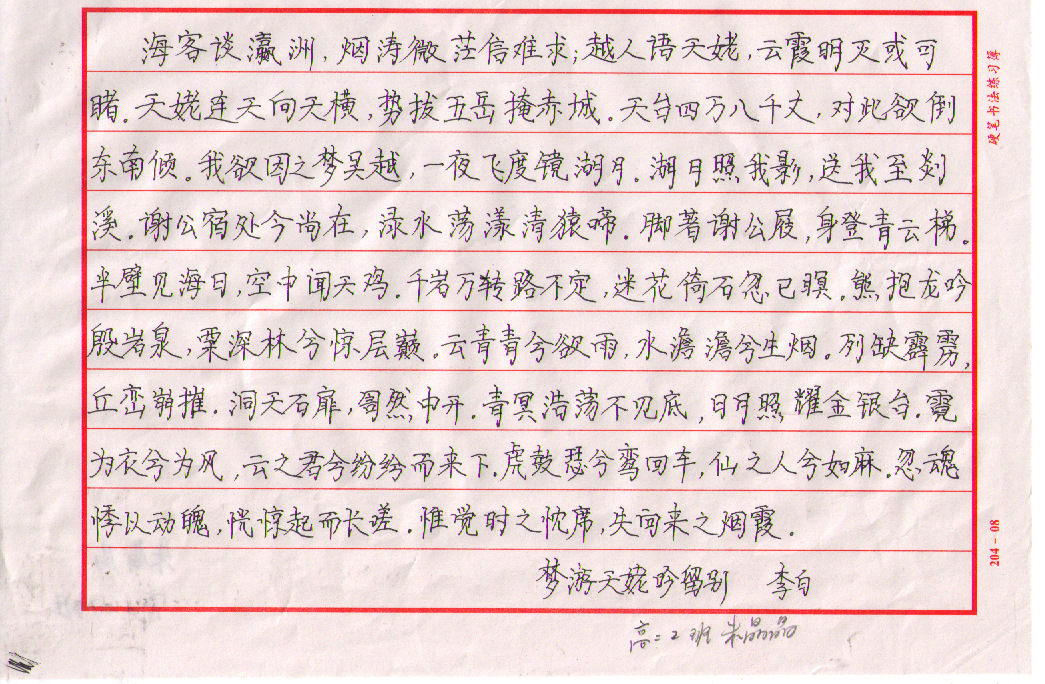 海客谈瀛洲,烟涛微茫信难求;越人语天姥,云霞明灭或可
睹.天姥连天向天横,势拔五岳掩赤城.天台四万八千丈,对此欲倒
东南倾.我欲因之梦吴越,一夜飞度镜湖月.湖月照我影,送我至剡
溪.谢公宿处今尚在,渌水荡漾清猿啼.脚著谢公屐,身登青云梯.
半壁见海日,空中闻天鸡.千岩万转路不定,迷花倚石忽已暝.熊抱龙吟
殷岩泉,栗深林兮惊层巅.云青青兮欲雨,水澹澹兮生烟.列缺霹雳,
丘峦崩摧.洞天石扉,訇然中开.青冥浩荡不见底,日月照耀金银台.霓
为衣兮为风,云之君兮纷纷而来下.虎鼓瑟兮鸾回车,仙之人兮如麻.忽魂
悸以动魄,恍惊起而长嗟.惟觉时之忱席,失向来之烟霞.
梦游天姥吟留别 李白
高二2班 朱晶晶
硬笔书法练习簿
204-08